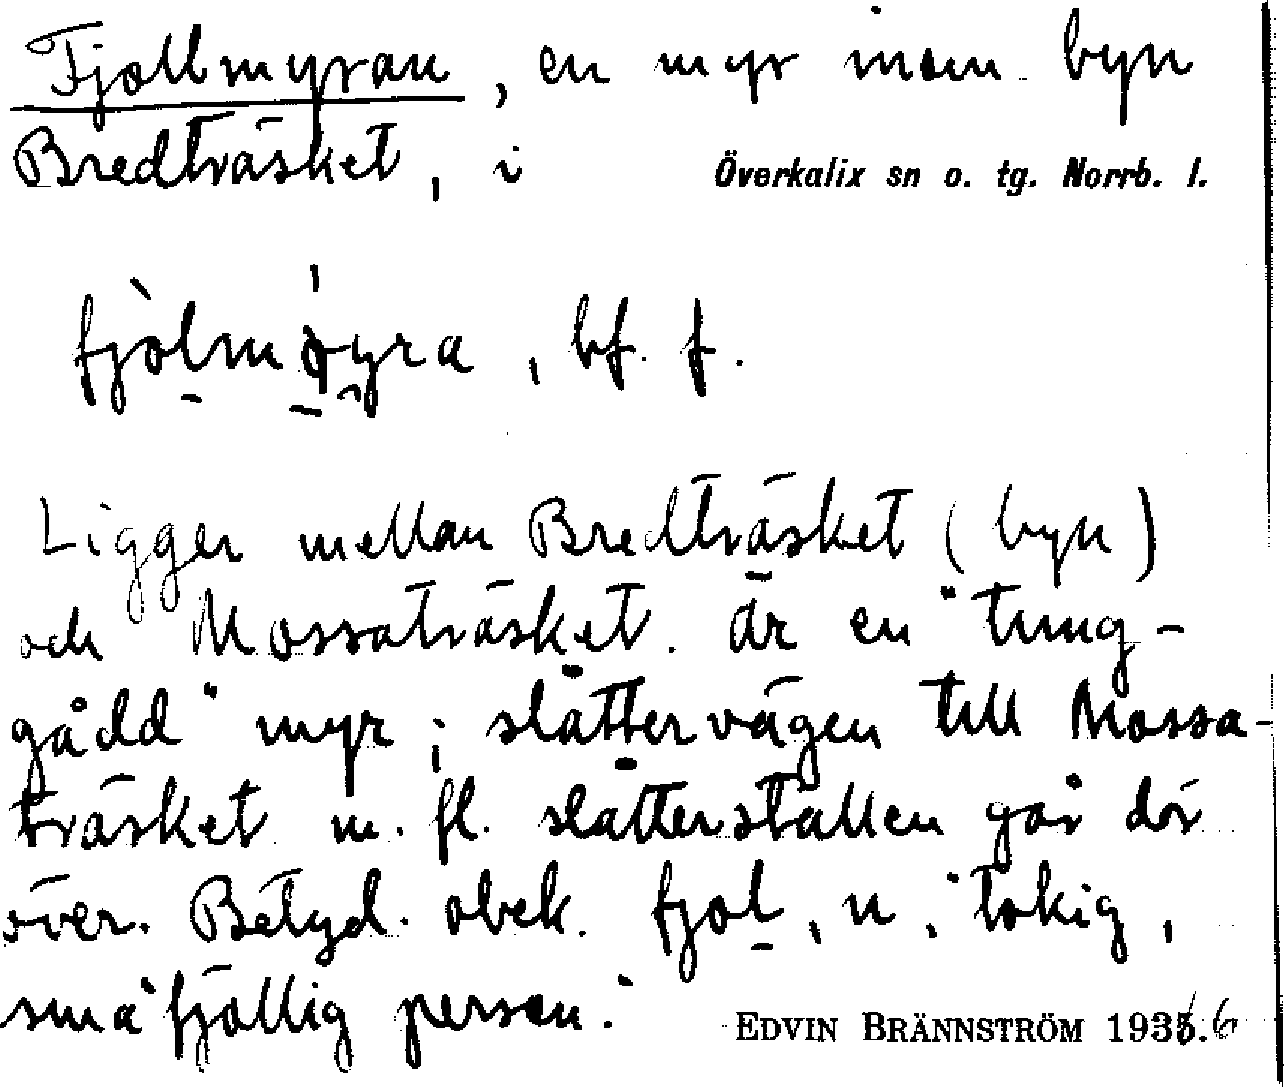 Fjollmyran, en myr inom byn
Bredträsket, i Överkalix sn o. tg. Norrb. l.
bf. f.
Ligger mellan Bredträsket (byn)
och Mossaträsket. är en "tung-
gådd" myr; slåttervägen till Mossa-
träsket m. fl. slåtterställen går där
över. Betyd. obek. fjol, n, "tokig,
småfjollig person."
EDVIN BRÄNNSTRÖM 1936